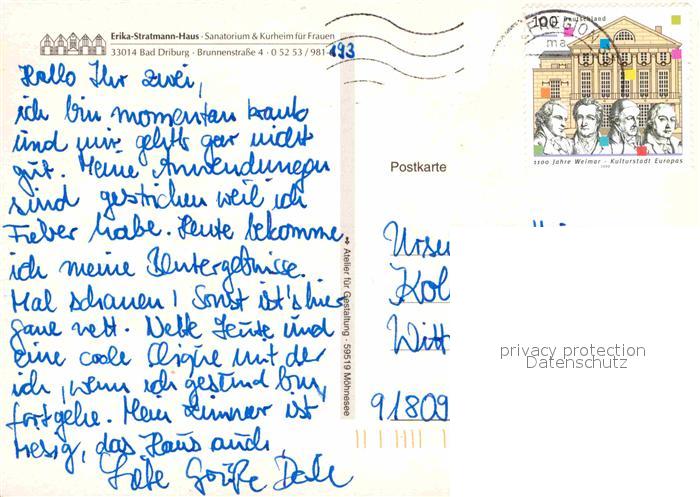 Erika-Stratmann-Haus · Sanatorium & Kurheim für Frauen
33014 Bad Driburg · Brunnenstraße 4 · 0 52 53 / 981-
493
Hallo Ihr zwei,
ich bin momentan krank
und mir gehts gar nicht
gut. Meine Anwendungen
sind gestrichen weil ich
Fieber habe. Heute bekomme
ich meine Blutergebnisse.
Mal schauen! Sonst ist's hier
ganz nett. Nette Leute und
eine coole Clique mit der
ich, wenn ich gesund bin,
fortgehe. Mein Zimmer ist
riesig, das Haus auch.
Liebe Grüße
Atelier für Gestaltung · 59519 Möhnesee
100 Deutschland
1100 Jahre Weimar - Kulturstadt Europas
Postkarte
Ursu
Kol
Witt
91809
privacy protection
Datenschutz